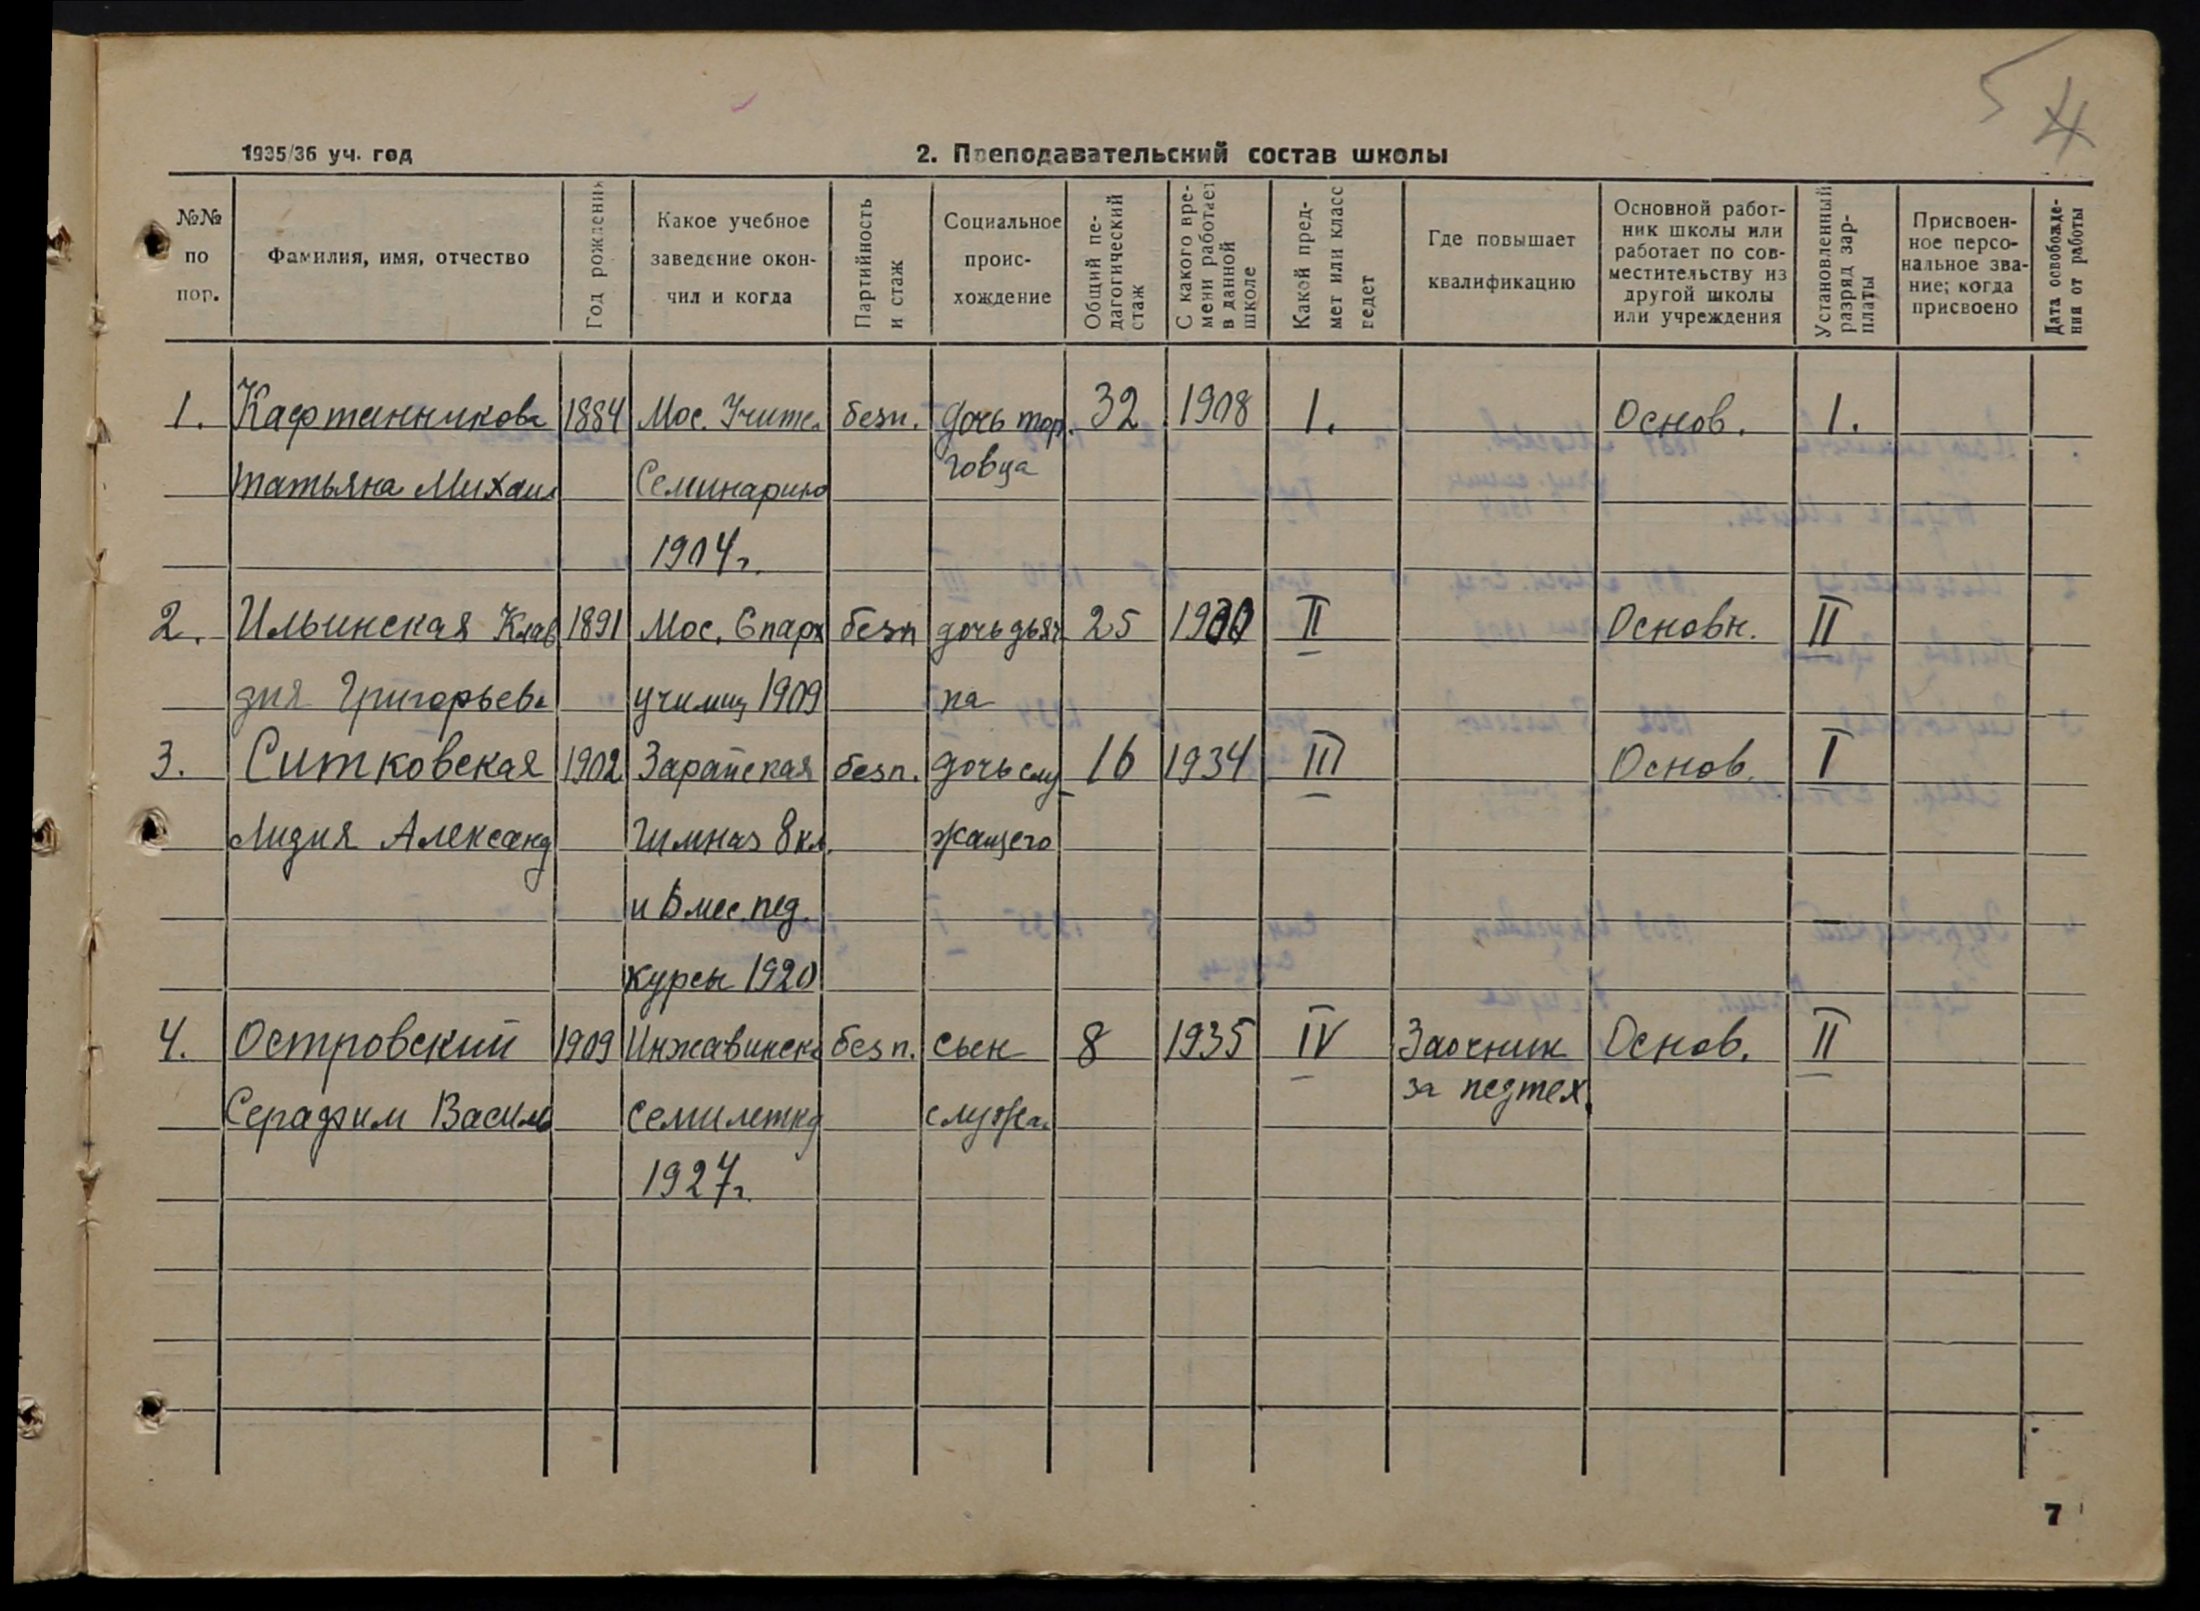 5 4
1935/36 уч. год
2. Преподавательский состав школы
№№ по пор.
Фамилия, имя, отчество
Год рождения
Какое учебное заведение окончил и когда
Партийность и стаж
Социальное происхождение
Общий педагогический стаж
С какого времени работает в данной школе
Какой предмет или класс ведет
Где повышает квалификацию
Основной работник школы или работает по совместительству из другой школы или учреждения
Установленный разряд зарплаты
Присвоенное персональное звание; когда присвоено
Дата освобождения от работы
1. Кафтанникова 1884 Мос. Учите. безп. дочь тор. 32 1908 1. Основ. 1.
Татьяна Михаил Семинарию говца
1904 г.
2. Ильинская Клав 1891 Мос. Епарх безп дочь дьяч 25 1930 II Основн. II
дия Григорьев. училищ 1909 ка
3. Ситковская 1902 Зарайская безп. дочь слу 16 1934 III Основ. I
Лидия Александ Гимназ 8 кл. жащего
и 6 мес. пед.
курсы 1920
4. Островский 1909 Инжавинск. безп. сын 8 1935 IV Заочник Основ. II
за педтех.
Серафим Василь семилетку служа.
1927 г.
7